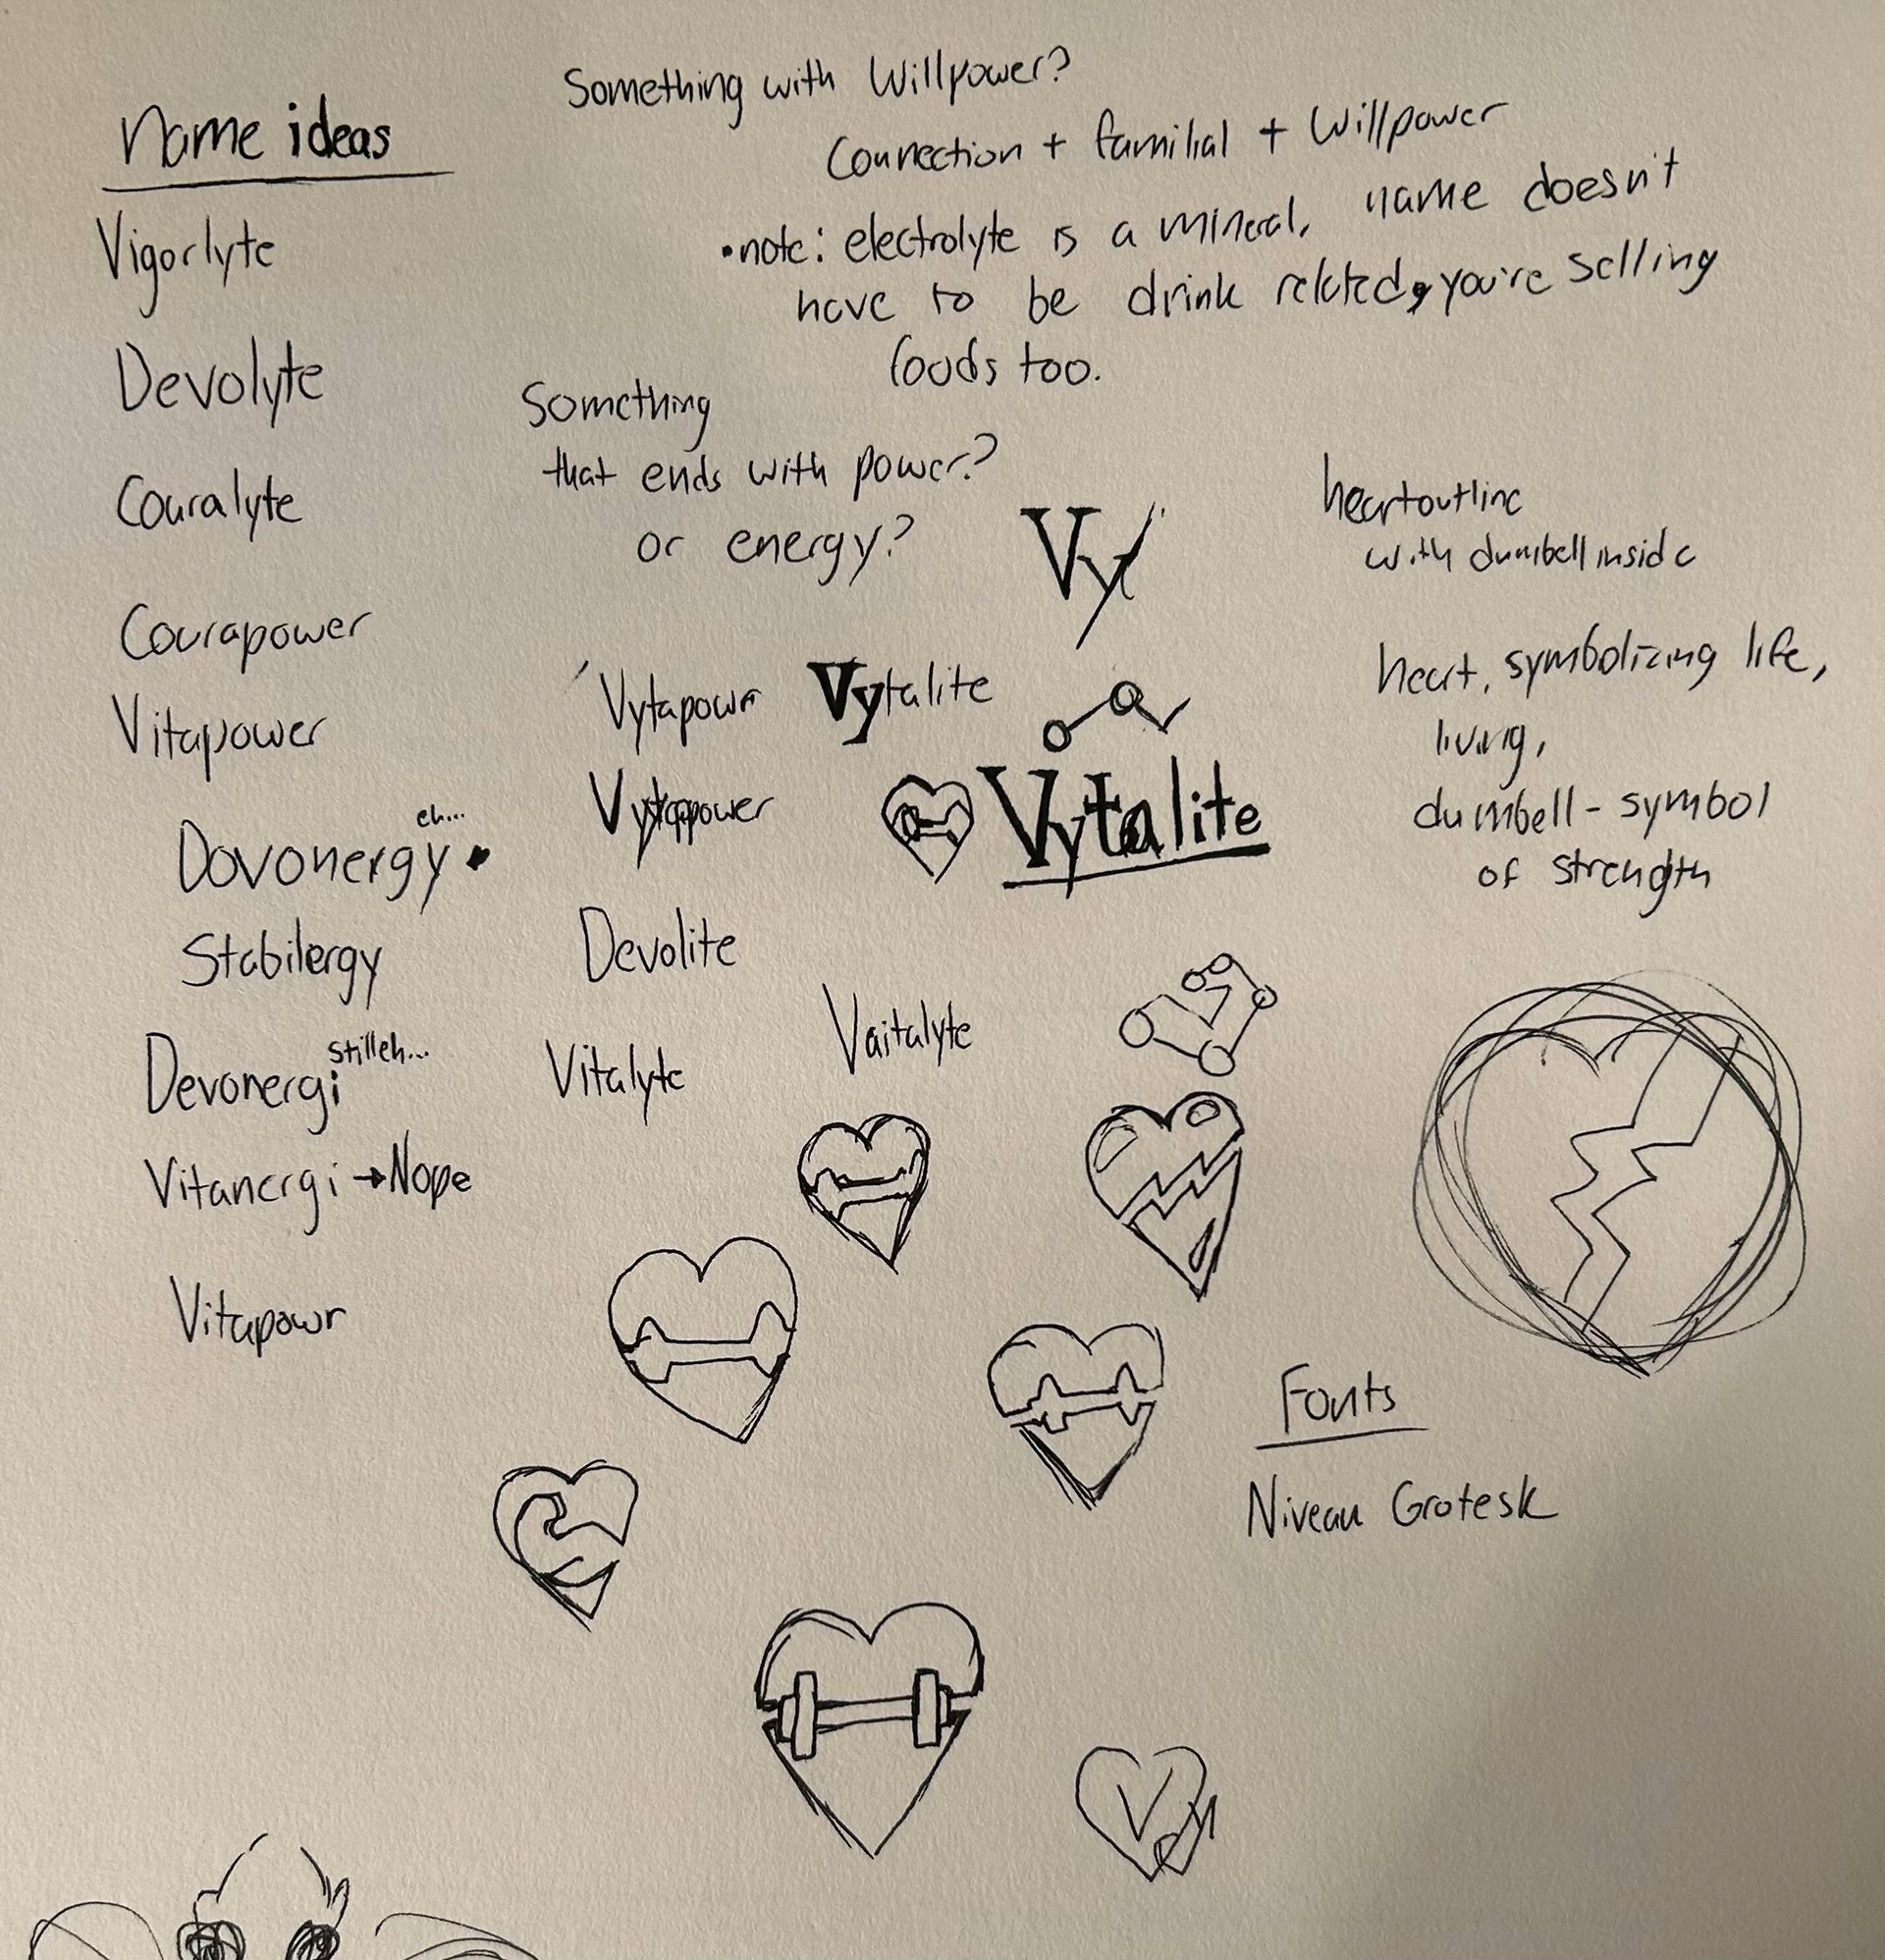 Name ideas
Vigorlyte
Devolyte
Couralyte
Courapower
Vitapower
eh...
Dovonergy
Stabilergy
stilleh...
Devonergi
Vitanergi → Nope
Vitapowr
Something with Willpower?
Connection + familial + Willpower
•note: electrolyte is a mineral, name doesn't
have to be drink related, you're selling
foods too.
Something
that ends with power?
or energy?
Vy
Vytapowr
Vytalite
Vytapower
Vytalite
Devolite
Vaitalyte
Vitalyte
heartoutline
with dumbell inside
heart, symbolizing life,
living,
dumbell - symbol
of strength
Fonts
Niveau Grotesk
V